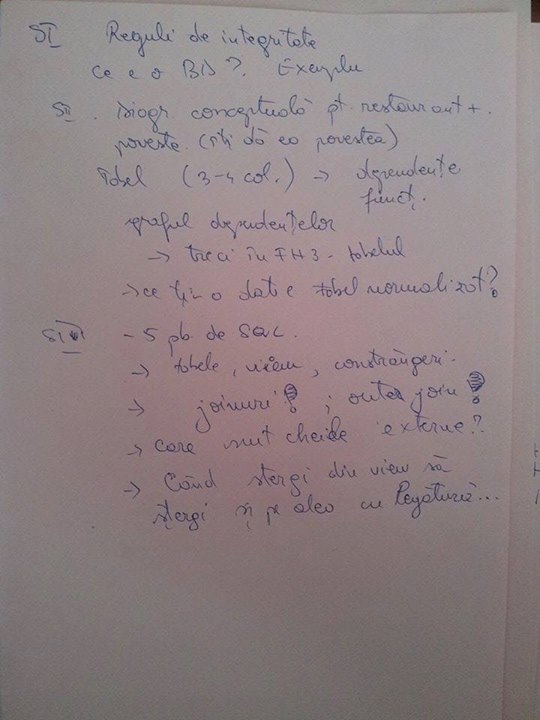 SI Reguli de integritate
Ce e o BD? Exemplu
SII. Diagr conceptuală pt. restaurant +
poveste. (îți dă ea povestea)
Tabel (3-4 col.) → dependențe
funcț.
graful dependențelor
→ treci în FN3 - tabelul
→ ce în o dat e tabel normalizat?
SIII - 5 pb de SQL.
→ tabele, view, constrângeri.
→ joinuri! ; outer join!
→ care sunt cheile externe?
→ Când ștergi din view să
ștergi și pe alea cu legătură...